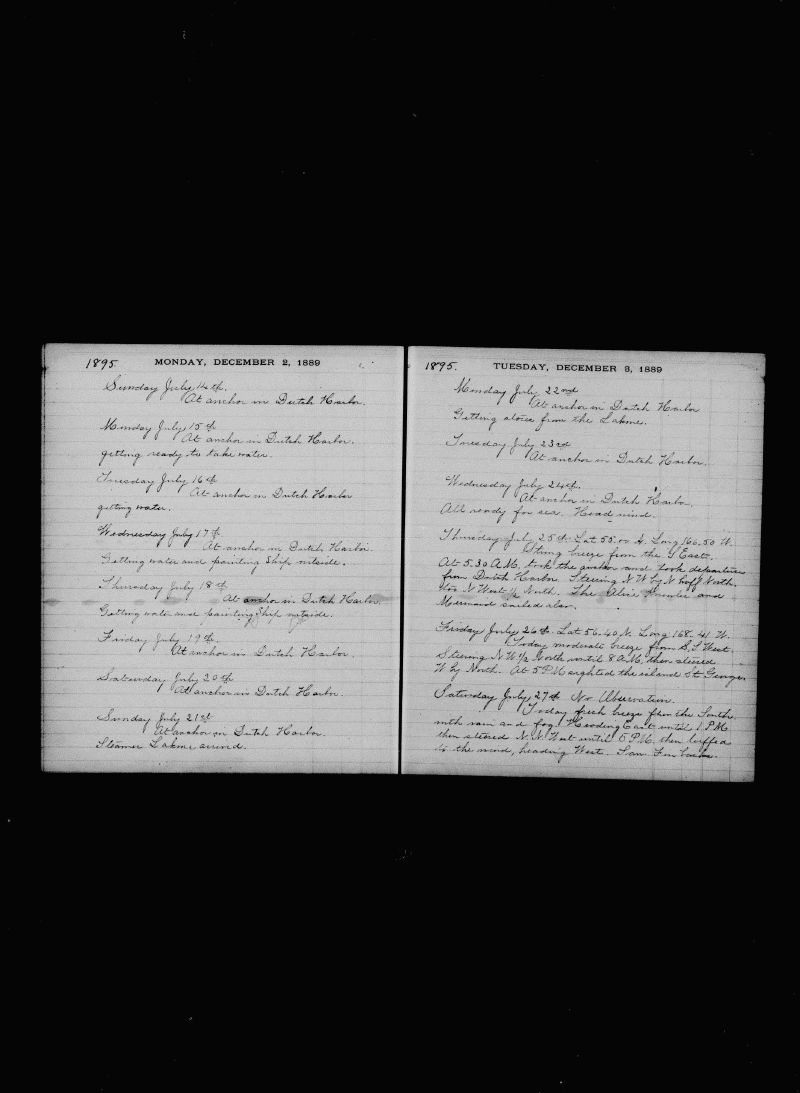 1895.
MONDAY, DECEMBER 2, 1889
Sunday July 14th.
At anchor in Dutch Harbor.
Monday July 15th
At anchor in Dutch Harbor.
getting ready to take water.
Tuesday July 16th
At anchor in Dutch Harbor
getting water.
Wednesday July 17th
At anchor in Dutch Harbor.
Getting water and painting Ship outside.
Thursday July 18th
At anchor in Dutch Harbor.
Getting water and painting Ship outside.
Friday July 19th.
At anchor in Dutch Harbor.
Saturday July 20th
At anchor in Dutch Harbor.
Sunday July 21st
At anchor in Dutch Harbor.
Steamer Lakme arrived.
1895.
TUESDAY, DECEMBER 3, 1889
Monday July 22nd
At anchor in Dutch Harbor
Getting stores from the Lakme.
Tuesday July 23rd
At anchor in Dutch Harbor.
Wednesday July 24th.
At anchor in Dutch Harbor.
All ready for sea. Head wind.
Thursday July 25th. Lat 55.00 N. Long 166.50 W.
Strong breeze from the S East.
At 5.30 A.M. took the anchor and took departure
from Dutch Harbor. Steering N W by N half North.
to N West 1/2 North. The Alice Knowles and
Mermaid sailed also.
Friday July 26th. Lat 56.40 N. Long 168.41 W.
Today moderate breeze from S.S West.
Steering N W 1/2 North until 8 A.M. then steered
W by North. At 5 P M sighted the island St. George.
Saturday July 27th No Observation.
Today fresh breeze from the South
with rain and fog. Heading East until 1 P M
then steered N.N. West until 5 P.M. then luffed
to the wind, heading West. Saw Fin backs.